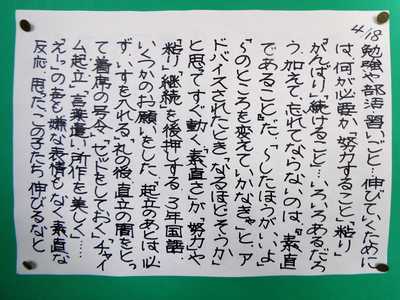 4/18
勉強や部活、習いごと…伸びていくために
は、何が必要か「努力すること」「粘り」
「がんばり」「続けること」…いろいろあるだろ
う。加えて、忘れてならないのは、「素直
であること」だ。「～したほうがいいよ」
「～のところを変えていかなきゃ」と、ア
ドバイスされたとき「なるほどそうか」
と思ってすぐ動く“素直さ”が「努力」や
「粘り」「継続」を後押しする。3年国語
いくつかのお願いをした。「起立のあとは必
ず、いすを入れる」「礼の後、直立の間をとっ
て、着席の号令」「セットをしておく」「チャイ
ム起立」「言葉遣い、所作を美しく」……
「えー」の声も嫌な表情もなく素直な
反応。思った、この子たち伸びるなと